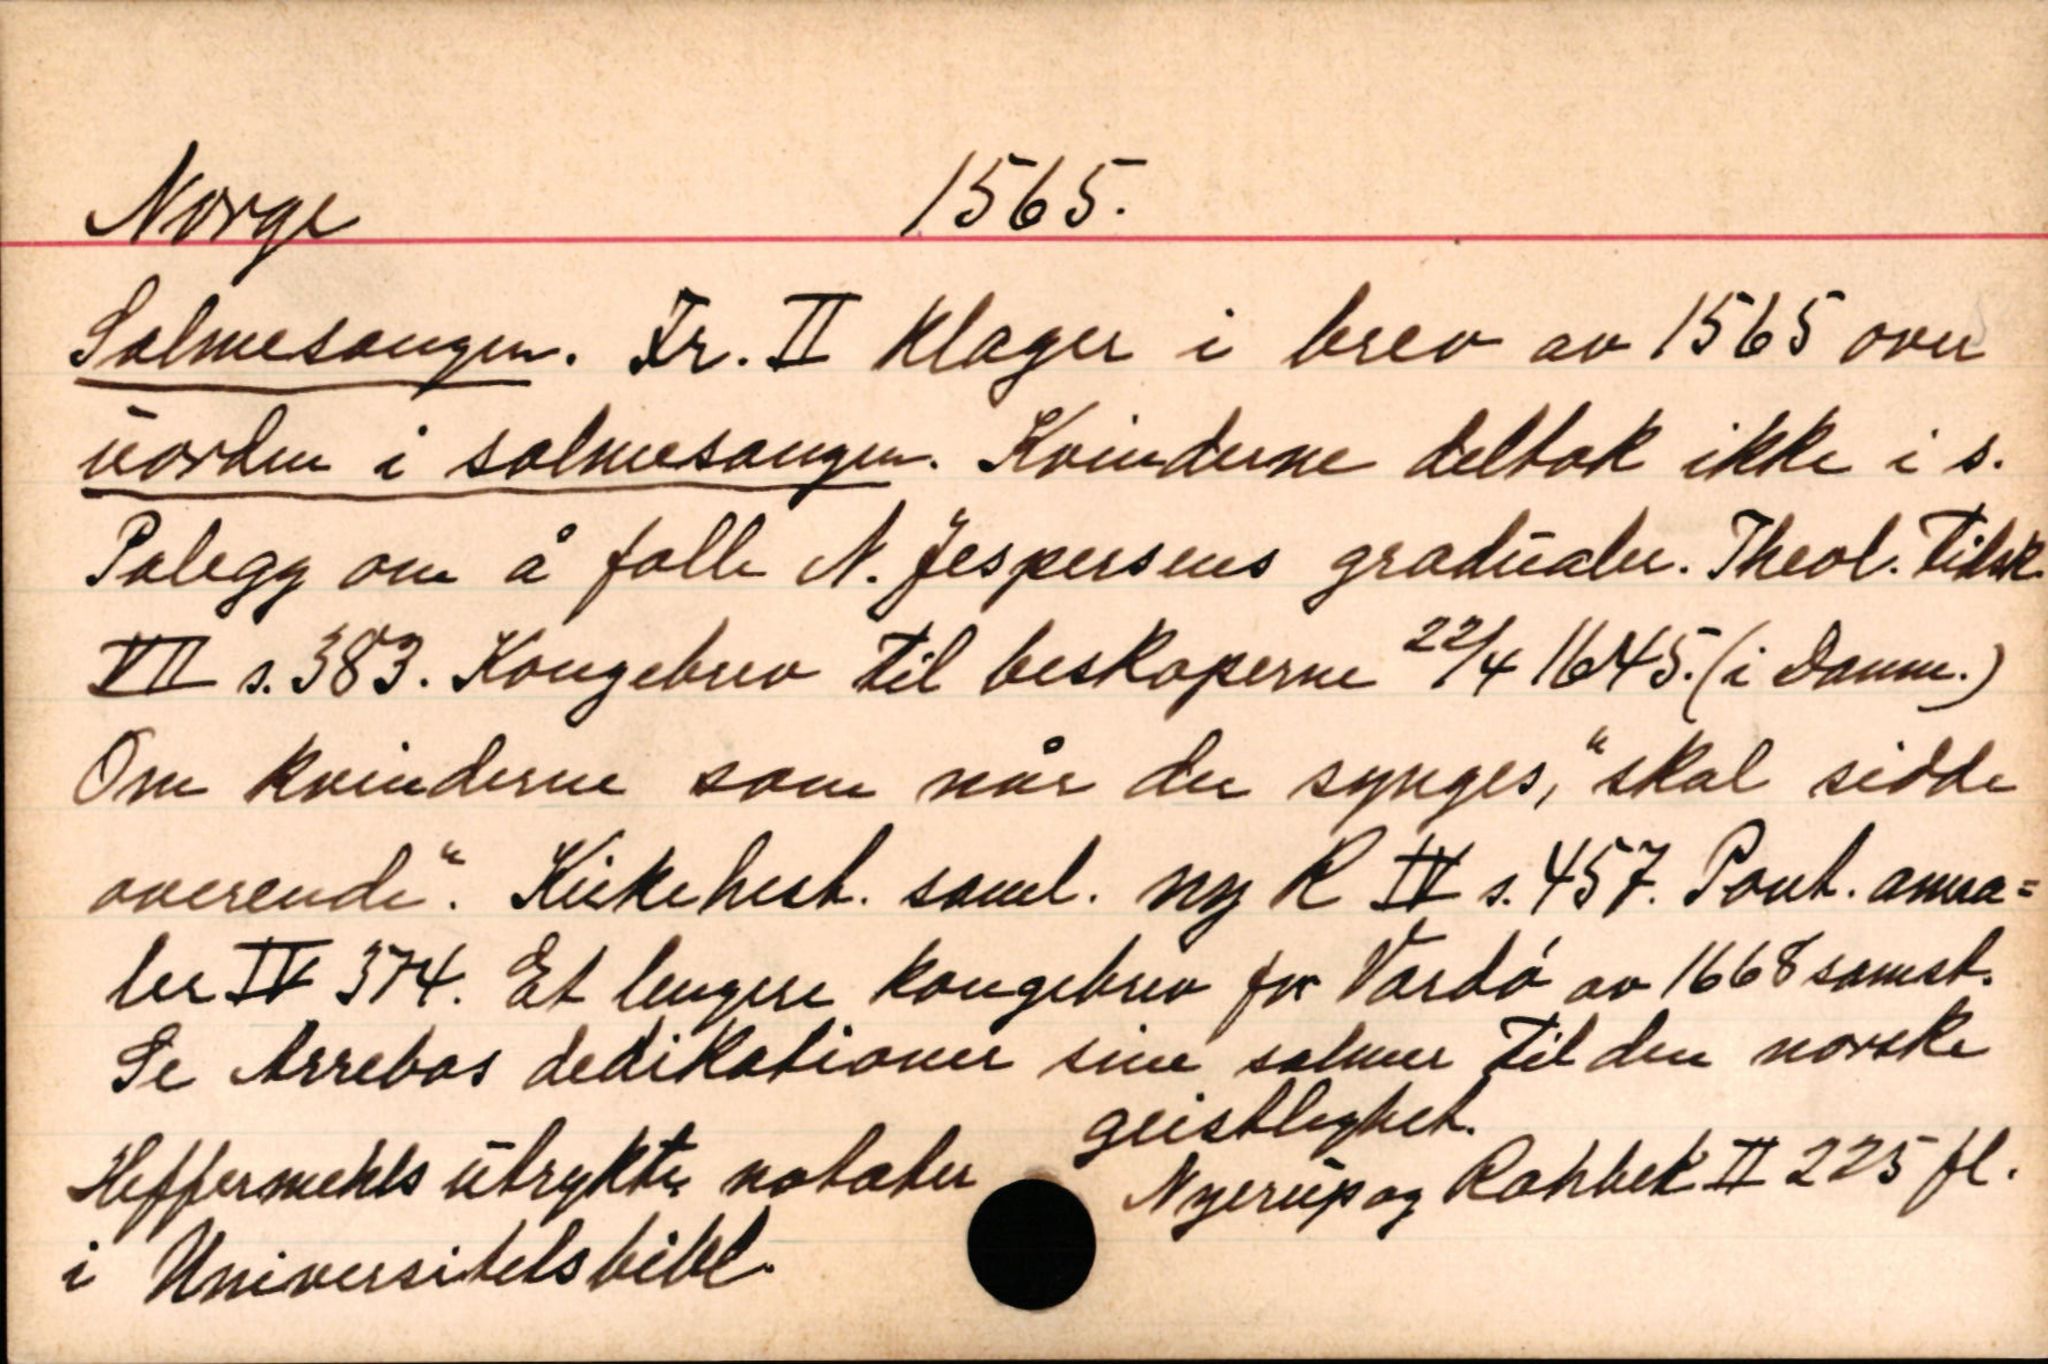 Norge 1565.
Salmesangen. Fr. II klager i brev av 1565 over
uorden i salmesangen. Kvinderne deltok ikke i s.
Palegg om å følle N. Jespersens graduale. Theol. Tidsk.
VII s. 383. Kongebrev til biskoperne 22/4 1645. (i Danm.)
Om kvinderne som når der synges, "skal sidde
overende". Kirkehist. saml. ny R IV s. 457. Pont. anna=
ler IV 374. Et lengere kongebrev for Vardö av 1668 samst.
Se Arrebos dedikationer sine salmer til den norske
geistlighet.
Heffermehls utrykte notater
i Universitetsbibl.
Nyerup og Rahbek II 225 fl.